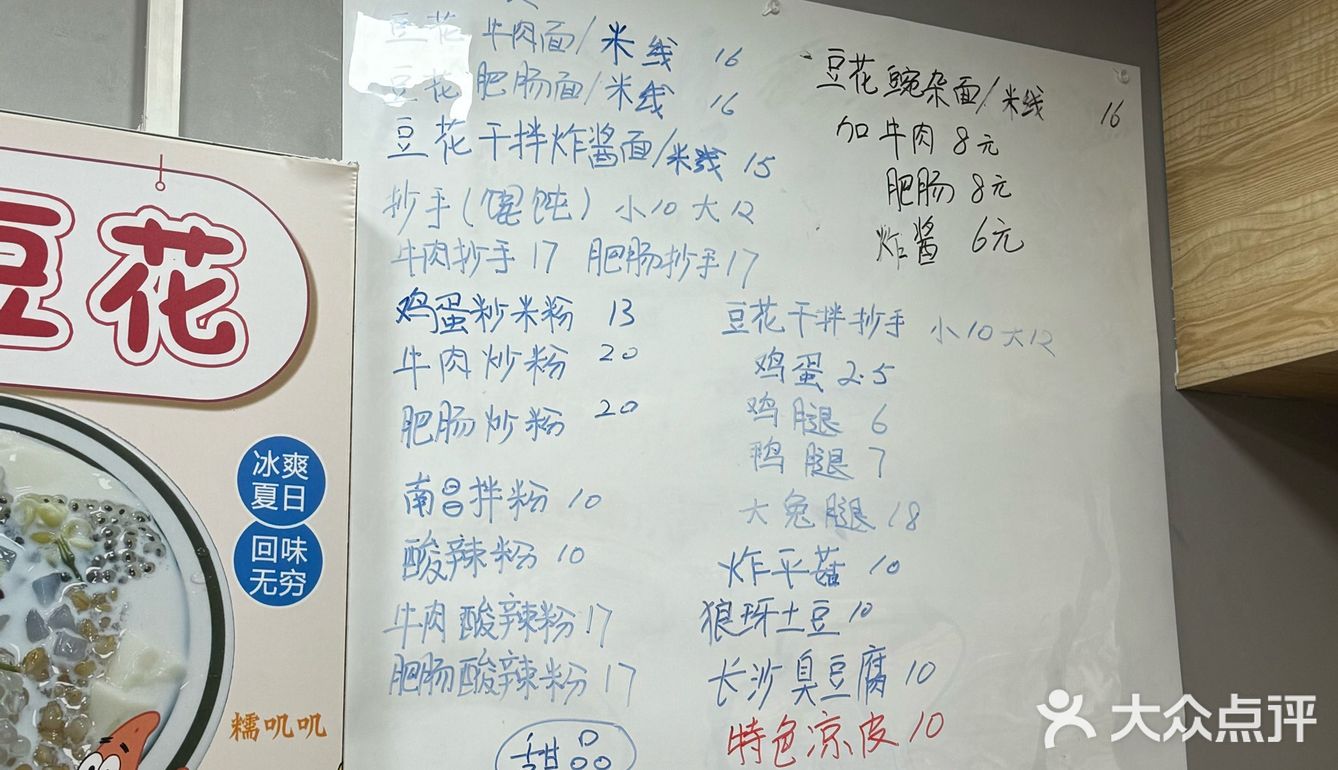 豆花牛肉面/米线 16
豆花肥肠面/米线 16
豆花干拌炸酱面/米线 15
抄手(馄饨) 小10 大12
牛肉抄手 17 肥肠抄手 17
鸡蛋炒米粉 13
牛肉炒粉 20
肥肠炒粉 20
南昌拌粉 10
酸辣粉 10
牛肉酸辣粉 17
肥肠酸辣粉 17
甜品
豆花豌杂面/米线 16
加牛肉 8元
肥肠 8元
炸酱 6元
豆花干拌抄手 小10 大12
鸡蛋 2.5
鸡腿 6
鸭腿 7
大兔腿 18
炸平菇 10
狼牙土豆 10
长沙臭豆腐 10
特色凉皮 10
豆花
冰爽
夏日
回味
无穷
糯叽叽
大众点评